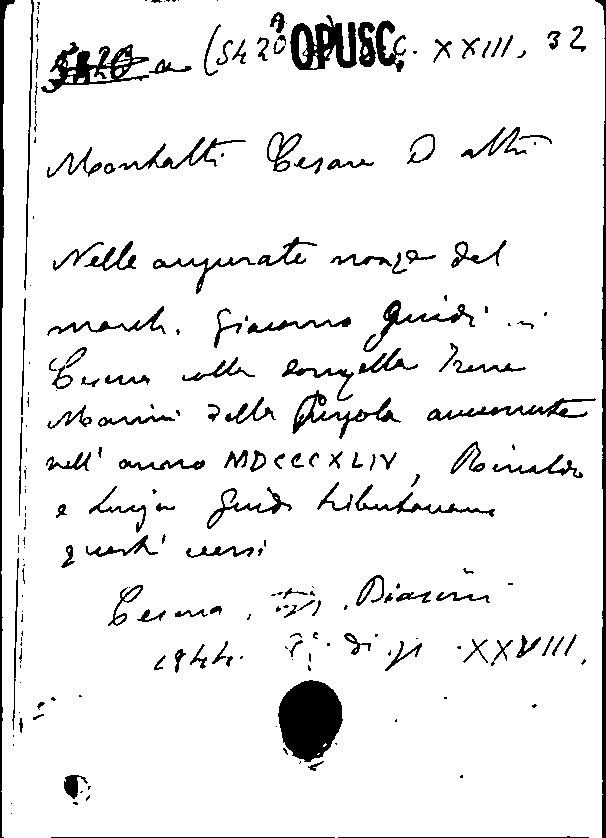 5420 a (5420 A OPUSC. XXIII, 32
Montalti Cesare e altri
Nelle augurate nozze del
march. Giacomo Guidi di
Cesena colla donzella Irene
Manni della Pergola avvenute
nell' anno MDCCCXLIV, Rinaldo
e Luigi Guidi tributavano
questi versi
Cesena, tip. Biasini
1844. 8°. di pp. XXVIII.